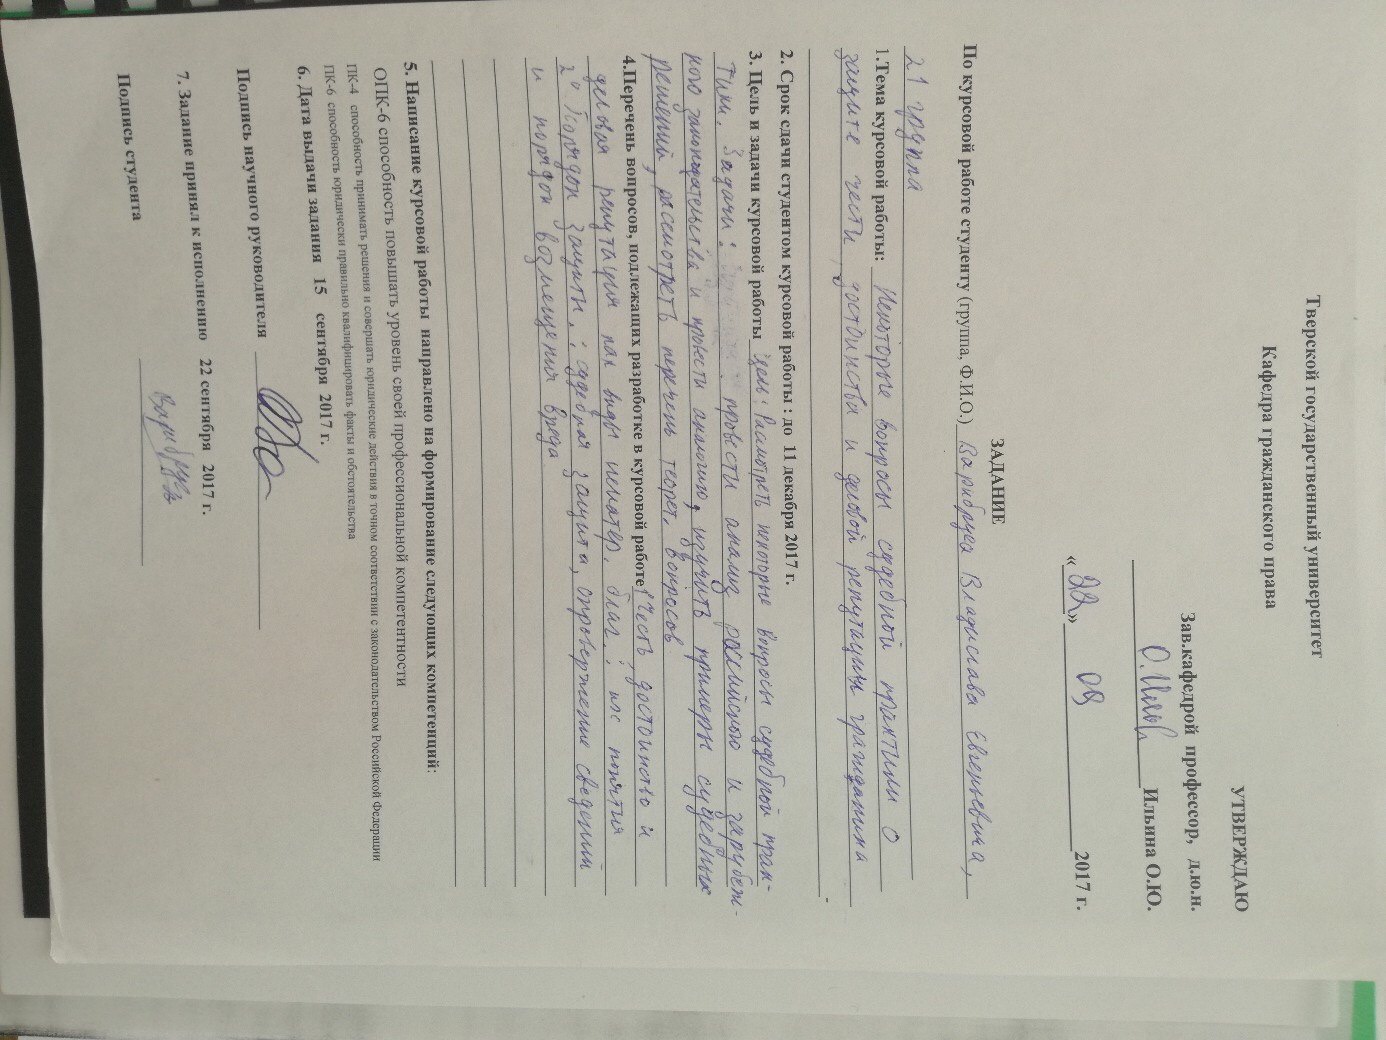 Тверской государственный университет
Кафедра гражданского права
УТВЕРЖДАЮ
Зав.кафедрой профессор, д.ю.н.
Ильина О.Ю.
«22» 09 2017 г.
ЗАДАНИЕ
По курсовой работе студенту (группа, Ф.И.О.) Владислава Евгеньевича,
21 группа
1.Тема курсовой работы: Некоторые вопросы судебной практики о
защите чести, достоинства и деловой репутации гражданина
2. Срок сдачи студентом курсовой работы : до 11 декабря 2017 г.
3. Цель и задачи курсовой работы Цель: Рассмотреть некоторые вопросы судебной прак-
тики. Задачи: провести анализ российского и зарубеж-
ного законодательства и провести аналогию, изучить примеры судебных
решений, рассмотреть перечень теорет. вопросов
4.Перечень вопросов, подлежащих разработке в курсовой работе 1) Честь, достоинство и
деловая репутация как виды нематер. благ: их понятия
2) Порядок защиты: судебная защита, опровержение сведений
и порядок возмещения вреда
5. Написание курсовой работы направлено на формирование следующих компетенций:
ОПК-6 способность повышать уровень своей профессиональной компетентности
ПК-4 способность принимать решения и совершать юридические действия в точном соответствии с законодательством Российской Федерации
ПК-6 способность юридически правильно квалифицировать факты и обстоятельства
6. Дата выдачи задания 15 сентября 2017 г.
Подпись научного руководителя
7. Задание принял к исполнению 22 сентября 2017 г.
Подпись студента